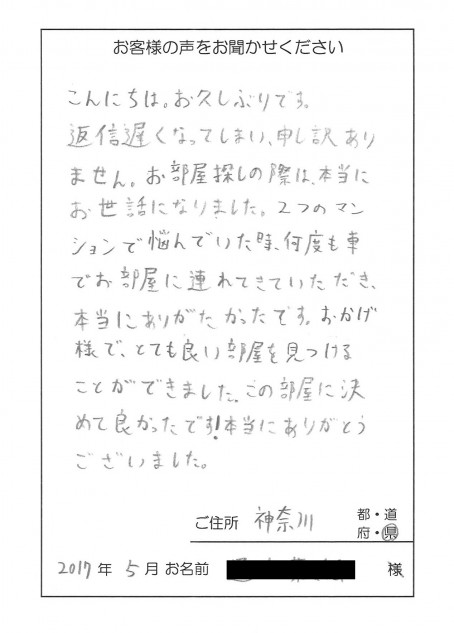 お客様の声をお聞かせください
こんにちは。お久しぶりです。
返信遅くなってしまい、申し訳あり
ません。お部屋探しの際は、本当に
お世話になりました。2つのマン
ションで悩んでいた時、何度も車
でお部屋に連れてきていただき、
本当にありがたかったです。おかげ
様で、とても良い部屋を見つける
ことができました。この部屋に決
めて良かったです!本当にありがとう
ございました。
ご住所 神奈川 都・道
府・県
2017年 5月 お名前 様